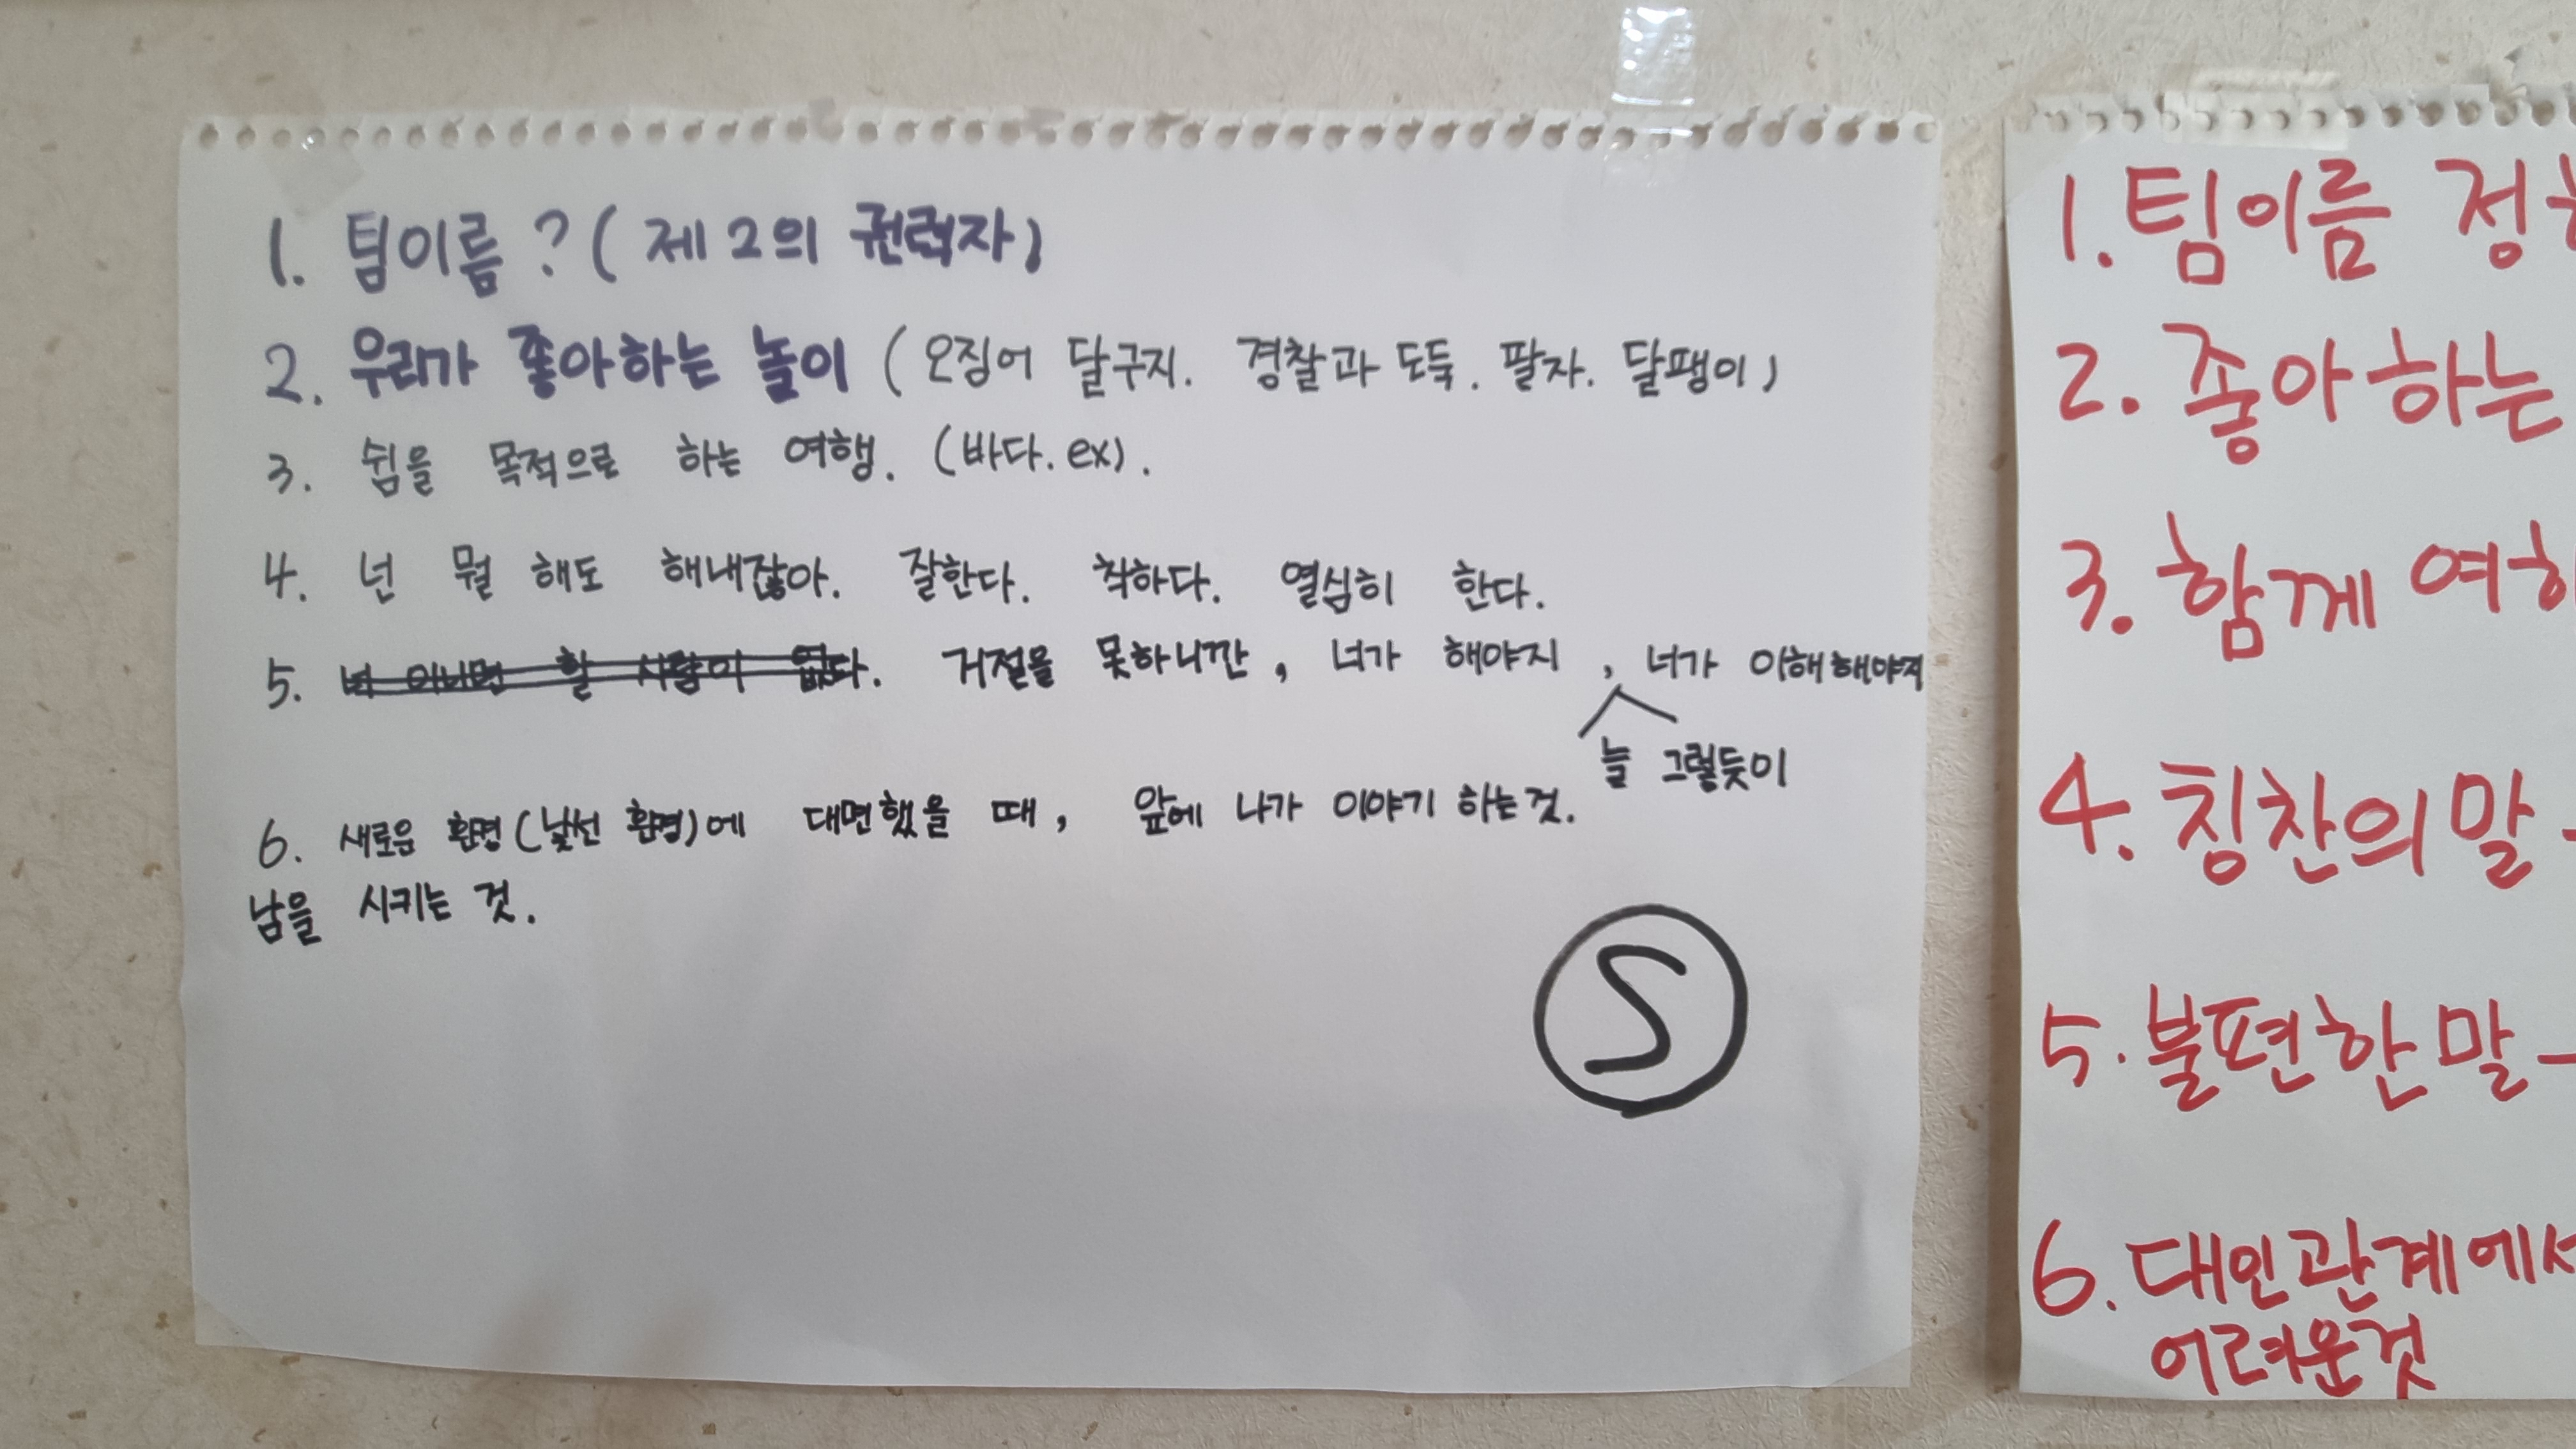 1. 팀이름? (제2의 권력자)
2. 우리가 좋아하는 놀이 (오징어 달구지. 경찰과 도둑. 팔자. 달팽이)
3. 쉼을 목적으로 하는 여행. (바다. ex).
4. 넌 뭘 해도 해내잖아. 잘한다. 착하다. 열심히 한다.
5. 너 아니면 할 사람이 없다. 거절을 못하니깐, 너가 해야지, 너가 이해해야지
늘 그렇듯이
6. 새로운 환경(낯선 환경)에 대면했을 때, 앞에 나가 이야기 하는 것.
남을 시키는 것.
S
1. 팀이름
2. 좋아하는
3. 함께
4. 칭찬의 말 -
5. 불편한 말 -
6. 대인관계에서
어려운것